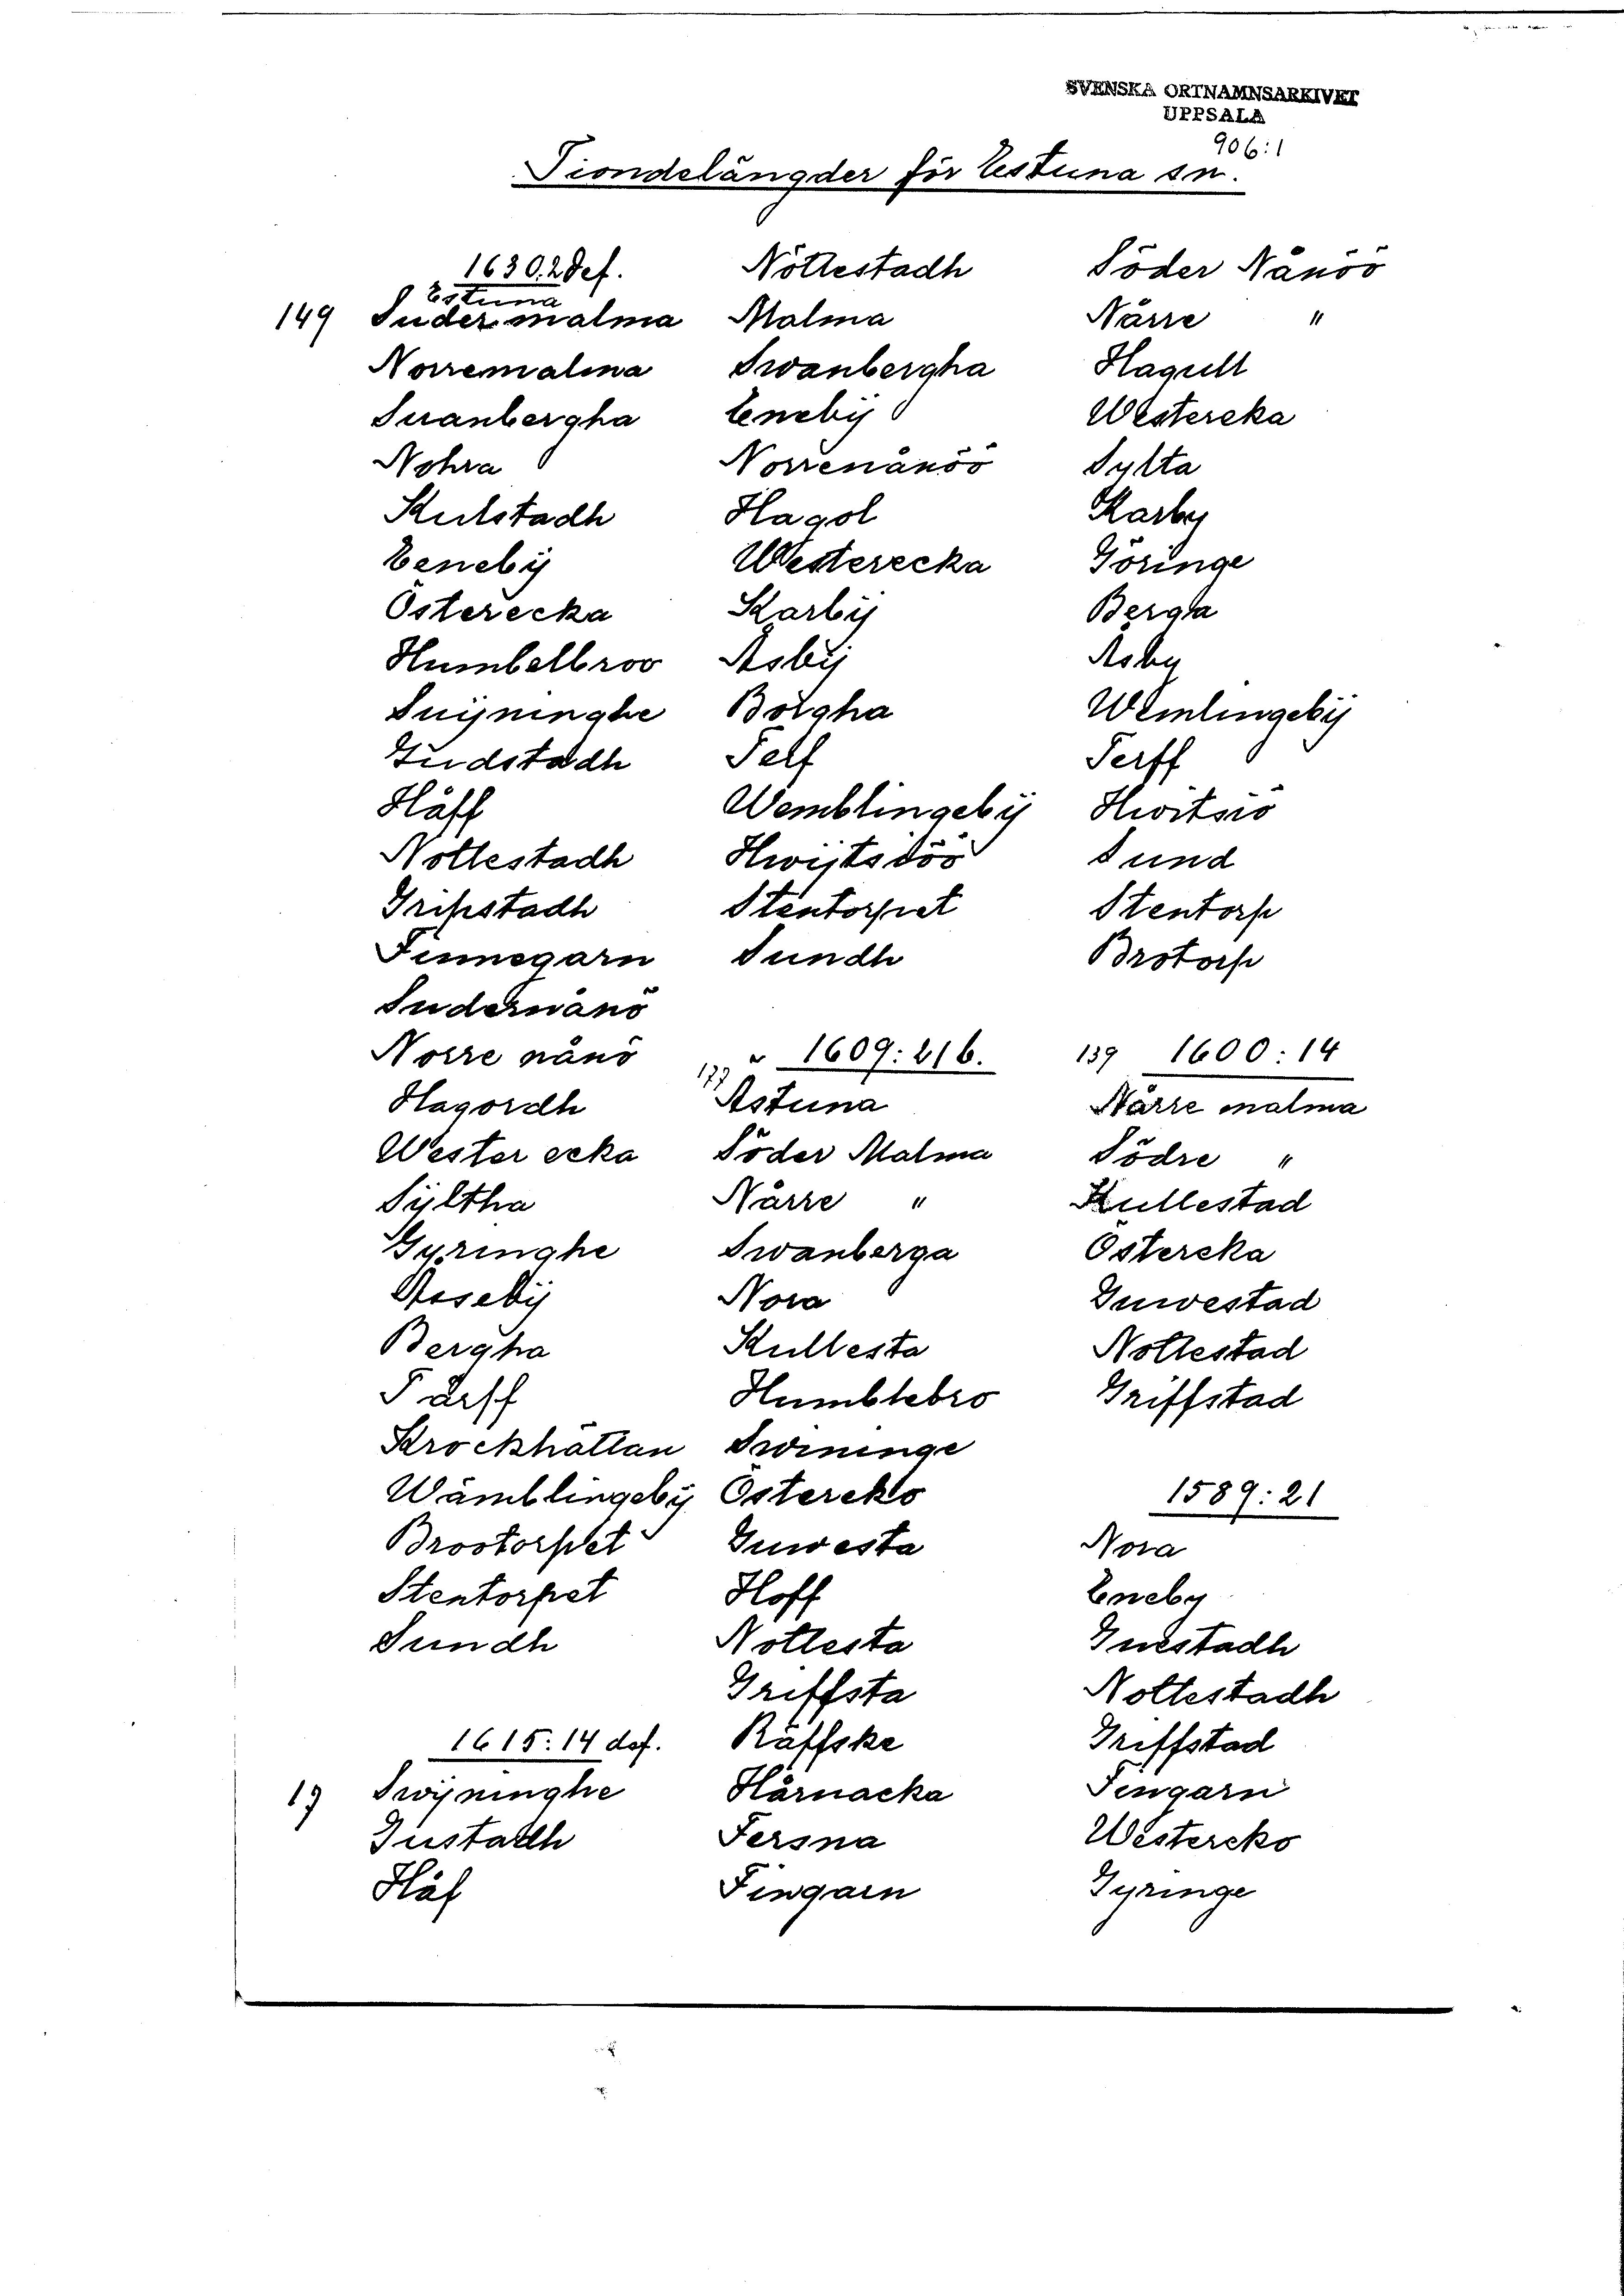 SVENSKA ORTNAMNSARKIVET
UPPSALA
906:1
Tiondelängder för Estuna sn.
1630.2 def.
Estuna
149 Sudermalma
Norremalma
Suanbergha
Nohra
Kulstadh
Eenebÿ
Österecka
Humbelbroo
Suijninghe
Gudstadh
Håff
Nottestadh
Gripstadh
Finnegarn
Sudernånö
Norre nånö
Hagordh
Wester ecka
Sÿltha
Gyringhe
Åssebÿ
Bergha
Tärff
Krockhättan
Wämblingebÿ
Brootorpet
Stentorpet
Sundh
1615:14 def.
19 Swijninghe
Gustadh
Håf
Nöttestadh
Malma
Swanbergha
Enebÿ
Norrenånöö
Hagol
Westerecka
Karbÿ
Åsbÿ
Börgha
Telf
Wemblingebÿ
Hwijtsiöö
Stentorpet
Sundh
177 1609:216.
Åstuna
Söder Malma
Närre "
Swanberga
Nora
Kullesta
Humblebro
Swininge
Östereko
Guwesta
Hoff
Nottesta
Griffsta
Räffske
Hårnacka
Fersna
Fingarn
Söder Nånöö
Närre "
Hagull
Westereka
Sylta
Karby
Göringe
Berga
Åsby
Wemlingebÿ
Terff
Hwitsiö
Sund
Stentorp
Brotorp
139 1600:14
Närre malma
Södre "
Kullestad
Östereka
Guwestad
Nottestad
Griffstad
1589:21
Nora
Eneby
Guestadh
Nottestadh
Griffstad
Fingarn
Westereko
Gyringe